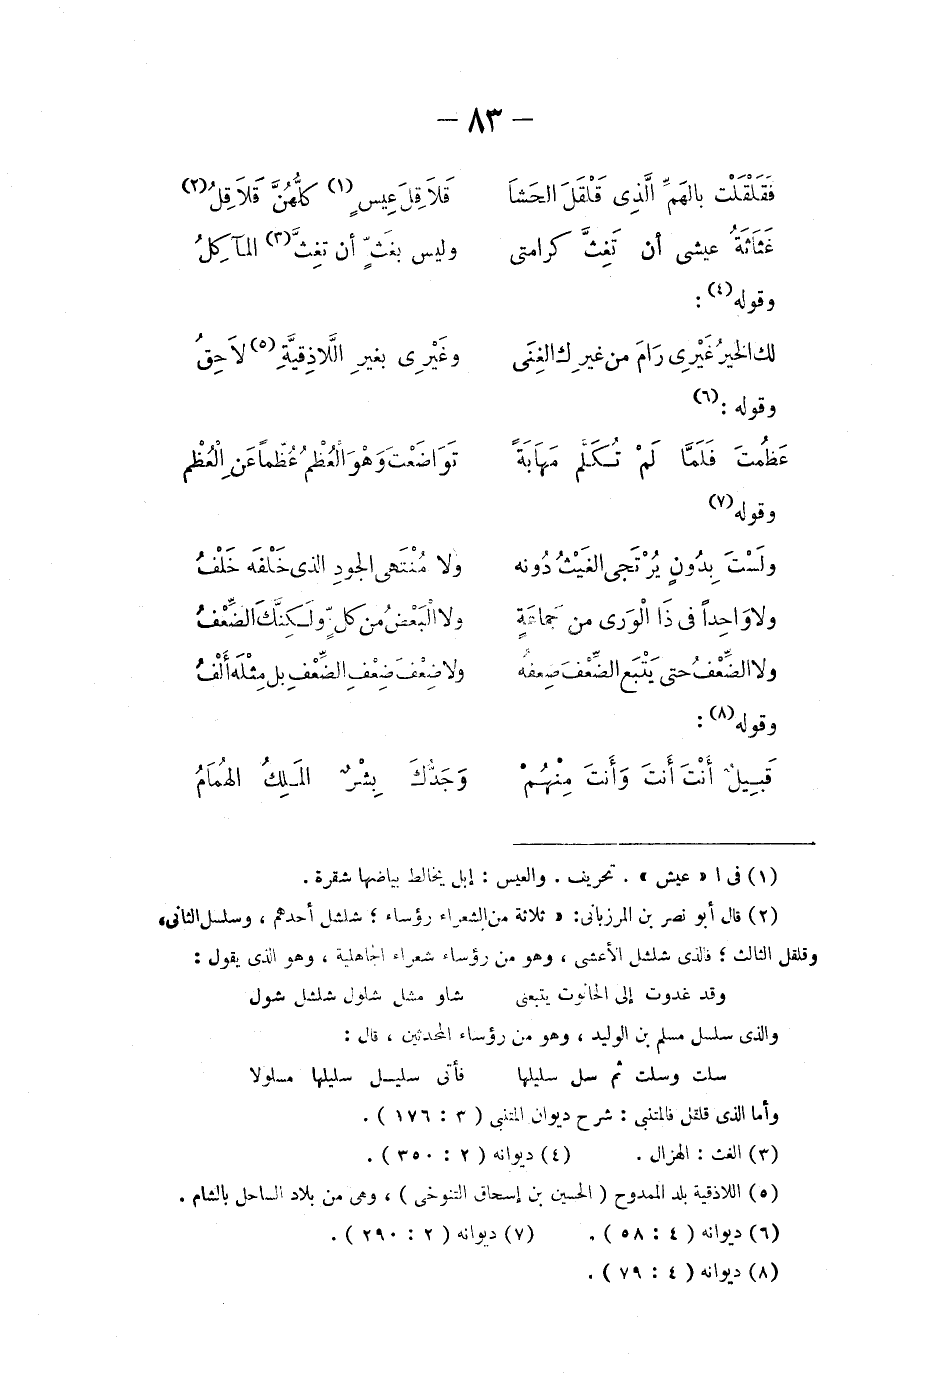 — ٨٣ —
فَقَلْقَلْت بالهَمِّ الَّذِى قَلْقَلَ الحَشَا قَلاَقِلَ عِيسٍ (١) كلُّهُنَّ قَلاَقِلُ (٢)
غَثَاثَةُ عيشى أن تَغِثَّ كرامتى وليس بغَثٍّ أن تغِثَّ (٣) المآكِلُ
وقوله (٤) :
لك الخيرُ غَيْرِى رَامَ من غيرِك الغِنَى وغَيْرِى بغيرِ اللَّاذِقِيَّةِ (٥) لاَحِقُ
وقوله : (٦)
عَظُمتَ فَلَمَّا لَمْ تُكَلَّم مَهَابَةً تَوَاضَعْتَ وَهْوَ الْعُظْمُ عُظْماً عَنِ الْعُظْم
وقوله (٧)
ولَسْتَ بِدُونٍ يُرْتَجى الغَيْثُ دُونه ولا مُنْتَهى الجودِ الذى خَلْفَه خَلْفُ
ولا وَاحِداً فى ذَا الْوَرى من جَماعَةٍ ولا الْبَعْضُ من كلٍّ ولكِنَّكَ الضِّعْفُ
ولا الضِّعْفُ حتى يَتْبَع الضِّعْفَ ضِعفهُ ولا ضِعْفَ ضِعْفِ الضِّعْفِ بل مِثْلَه أَلْفُ
وقوله (٨) :
قَبِيلٌ أَنْتَ أَنتَ وَأَنتَ مِنْهُمْ وَجَدُّكَ بِشْرٌ الْمَلِكُ الهُمَامُ
(١) فى ا « عيش » . تحريف . والعيس : إبل يخالط بياضها شقرة .
(٢) قال أبو نصر بن المرزبانى : « ثلاثة من الشعراء رؤساء ؛ شلشل أحدهم ، وسلسل الثانى،
وقلقل الثالث ؛ فالذى شلشل الأعشى ، وهو من رؤساء شعراء الجاهلية ، وهو الذى يقول :
وقد غدوت إلى الحانوت يتبعنى شاو مشل شلول شلشل شول
والذى سلسل مسلم بن الوليد ، وهو من رؤساء المحدثين ، قال :
سلت وسلت ثم سل سليلها فأتى سليل سليلها مسلولا
وأما الذى قلقل فالمتنبى : شرح ديوان المتنبى ( ٣ : ١٧٦ ) .
(٣) الغث : الهزال . (٤) ديوانه ( ٢ : ٣٥٠ ) .
(٥) اللاذقية بلد الممدوح ( الحسين بن إسحاق التنوخى ) ، وهى من بلاد الساحل بالشام .
(٦) ديوانه ( ٤ : ٥٨ ) . (٧) ديوانه ( ٢ : ٢٩٠ ) .
(٨) ديوانه ( ٤ : ٧٩ ) .